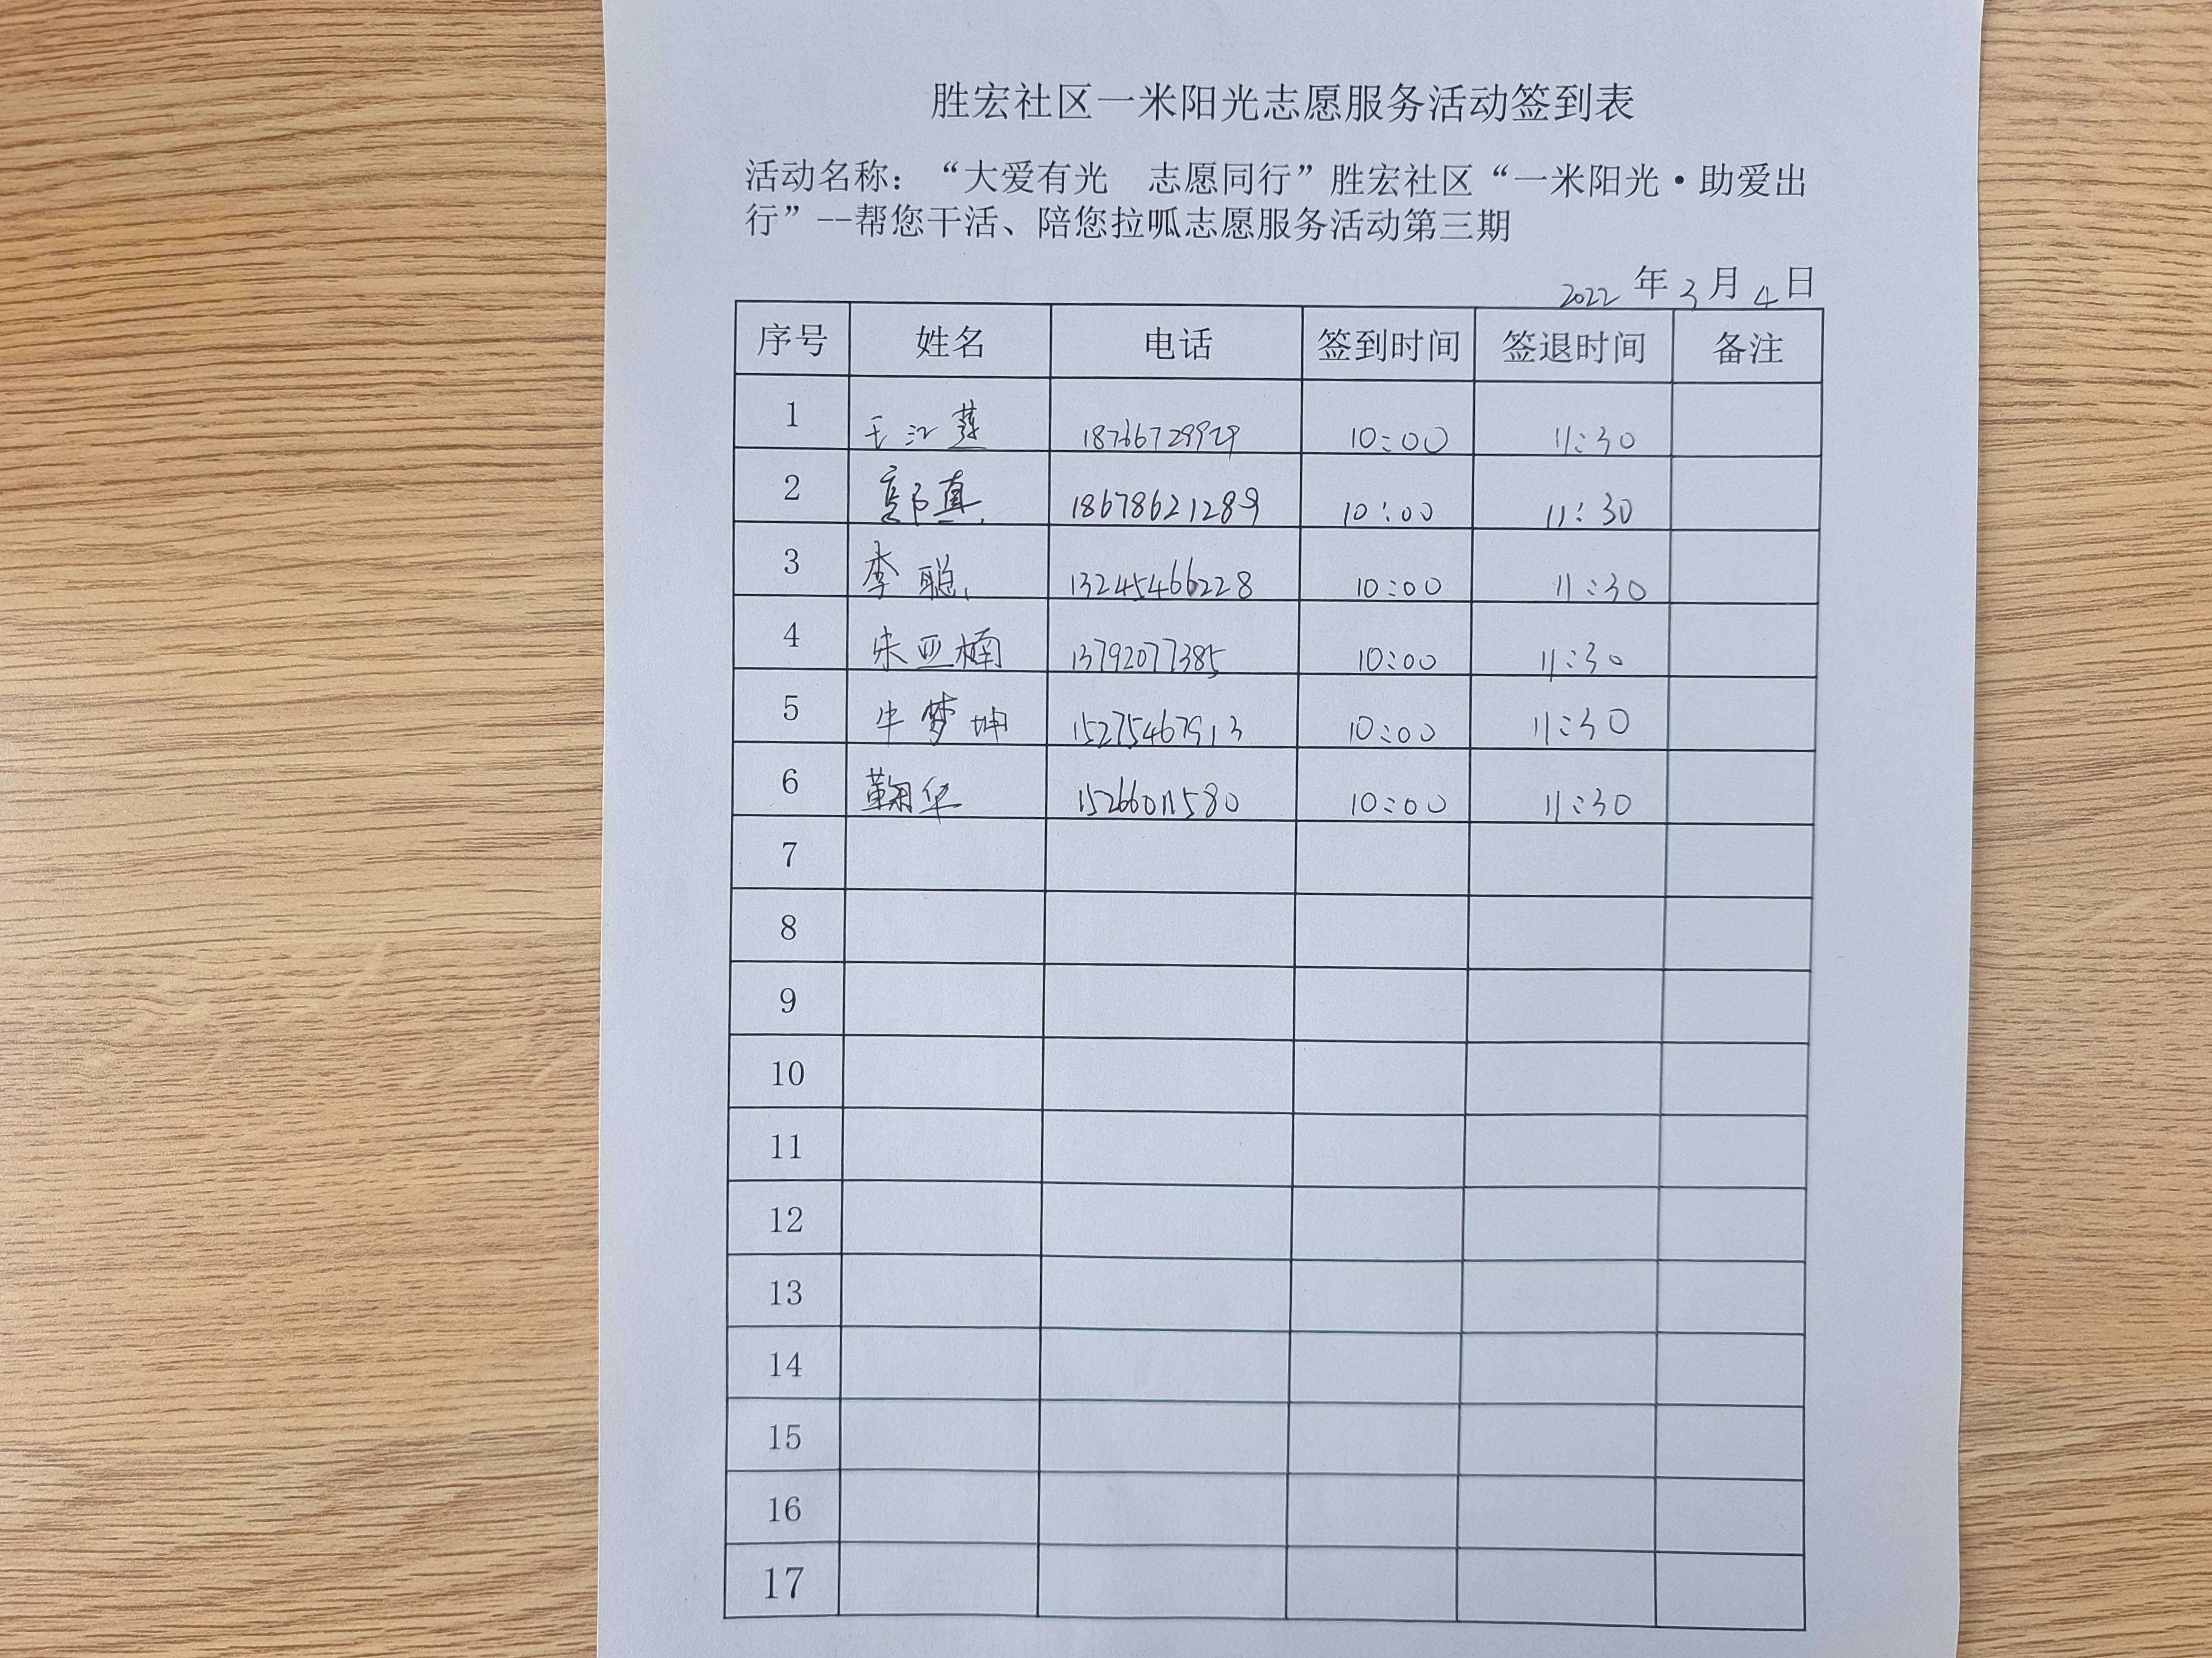 胜宏社区一米阳光志愿服务活动签到表
活动名称：“大爱有光　志愿同行”胜宏社区“一米阳光·助爱出
行”--帮您干活、陪您拉呱志愿服务活动第三期
2022 年 3 月 4 日
序号 姓名 电话 签到时间 签退时间 备注
1 江燕 10:00 11:30
2 郭真 18678621289 10:00 11:30
3 李聪 13245466228 10:00 11:30
4 宋亚楠 13792077385 10:00 11:30
5 牛梦坤 15275467913 10:00 11:30
6 鞠华 15266011580 10:00 11:30
7
8
9
10
11
12
13
14
15
16
17